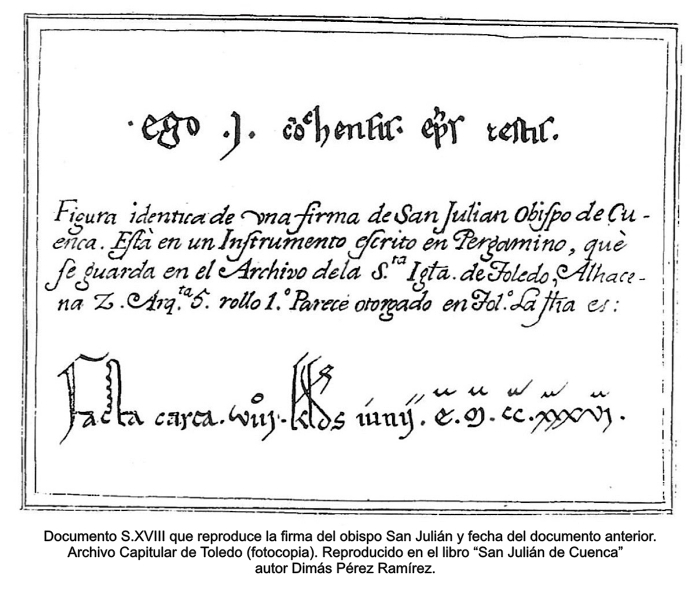 ·ego .J. cōᶜhensis· ep̄s testis.
Figura identica de una firma de San Julian Obiſpo de Cu-
enca. Eſtà en un Inſtrumento eſcrito en Pergamino, què
ſe guarda en el Archivo dela S.ᵗᵃ Igľa. de Toledo, Alhace-
na Z. Arq.ᵗᵃ 5. rollo 1.º Parece otorgado en Tol.º La ſħa es:
Facta carta. kl̄ds iunij. e. m. cc. xxxvi.
Documento S.XVIII que reproduce la firma del obispo San Julián y fecha del documento anterior.
Archivo Capitular de Toledo (fotocopia). Reproducido en el libro “San Julián de Cuenca”
autor Dimás Pérez Ramírez.